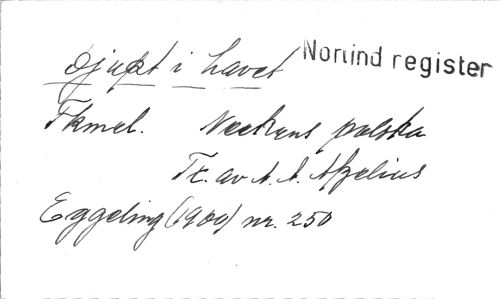 Djupt i havet
Norlind register
Fkmel. Neckens polska
Tx. av A. A. Afzelius
Eggeling (1900) nr. 250